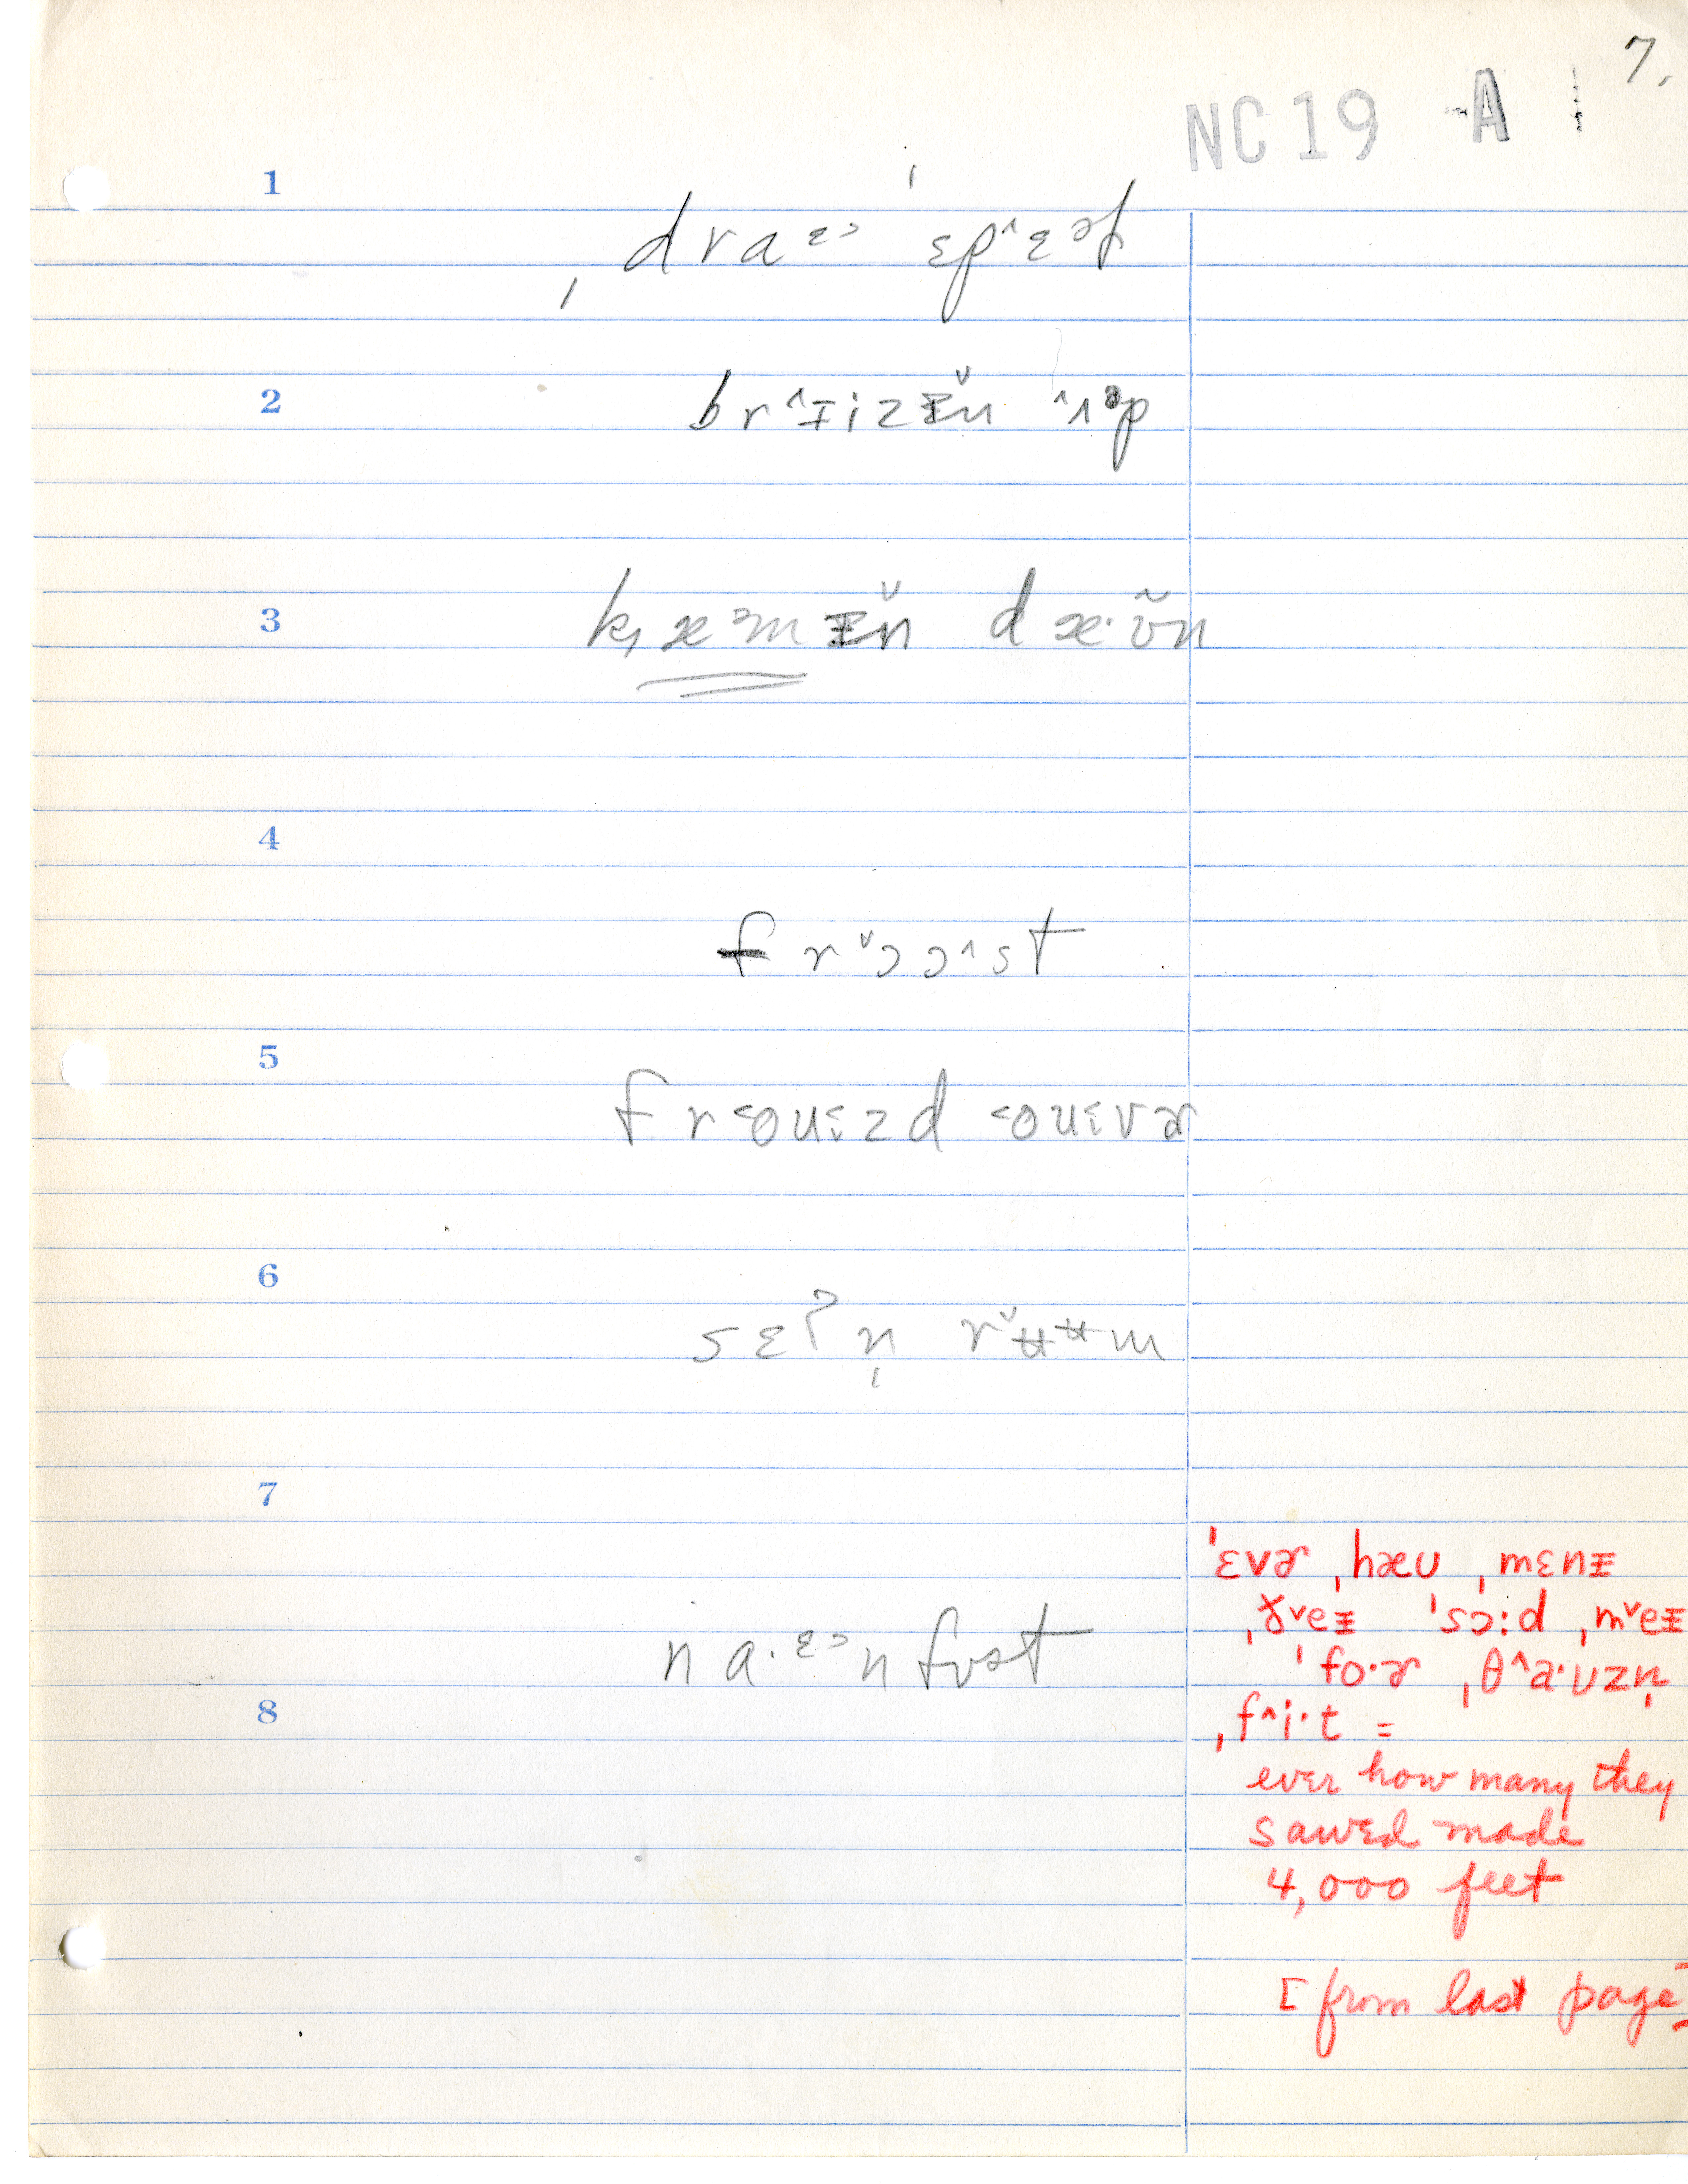 7.
NC 19 A
1
ˌdraᵋᵓ ˈɛp^ɛəɫ
2
br^ɪizɪ̌n ^ʌᵊp
3
k̟æᵊmɪ̌n dæ·ʊ̃n
4
frˇɔɔ^st
5
fr˂oʊˤzd ˂oʊˤvɚ
6
sɛʔn̩ rˇʉʉm
7
na·ᵋᵓn fʊət
8
ˈɛvɚ ˌhæʊ ˌmɛnɪ
ˌðˇeɪ ˈsɔ:d ˌmˇeɪ
ˈfo·ɚ ˌθ^a·ʊzn̩
ˌf^i·t =
ever how many they
sawed made
4,000 feet
[from last page]